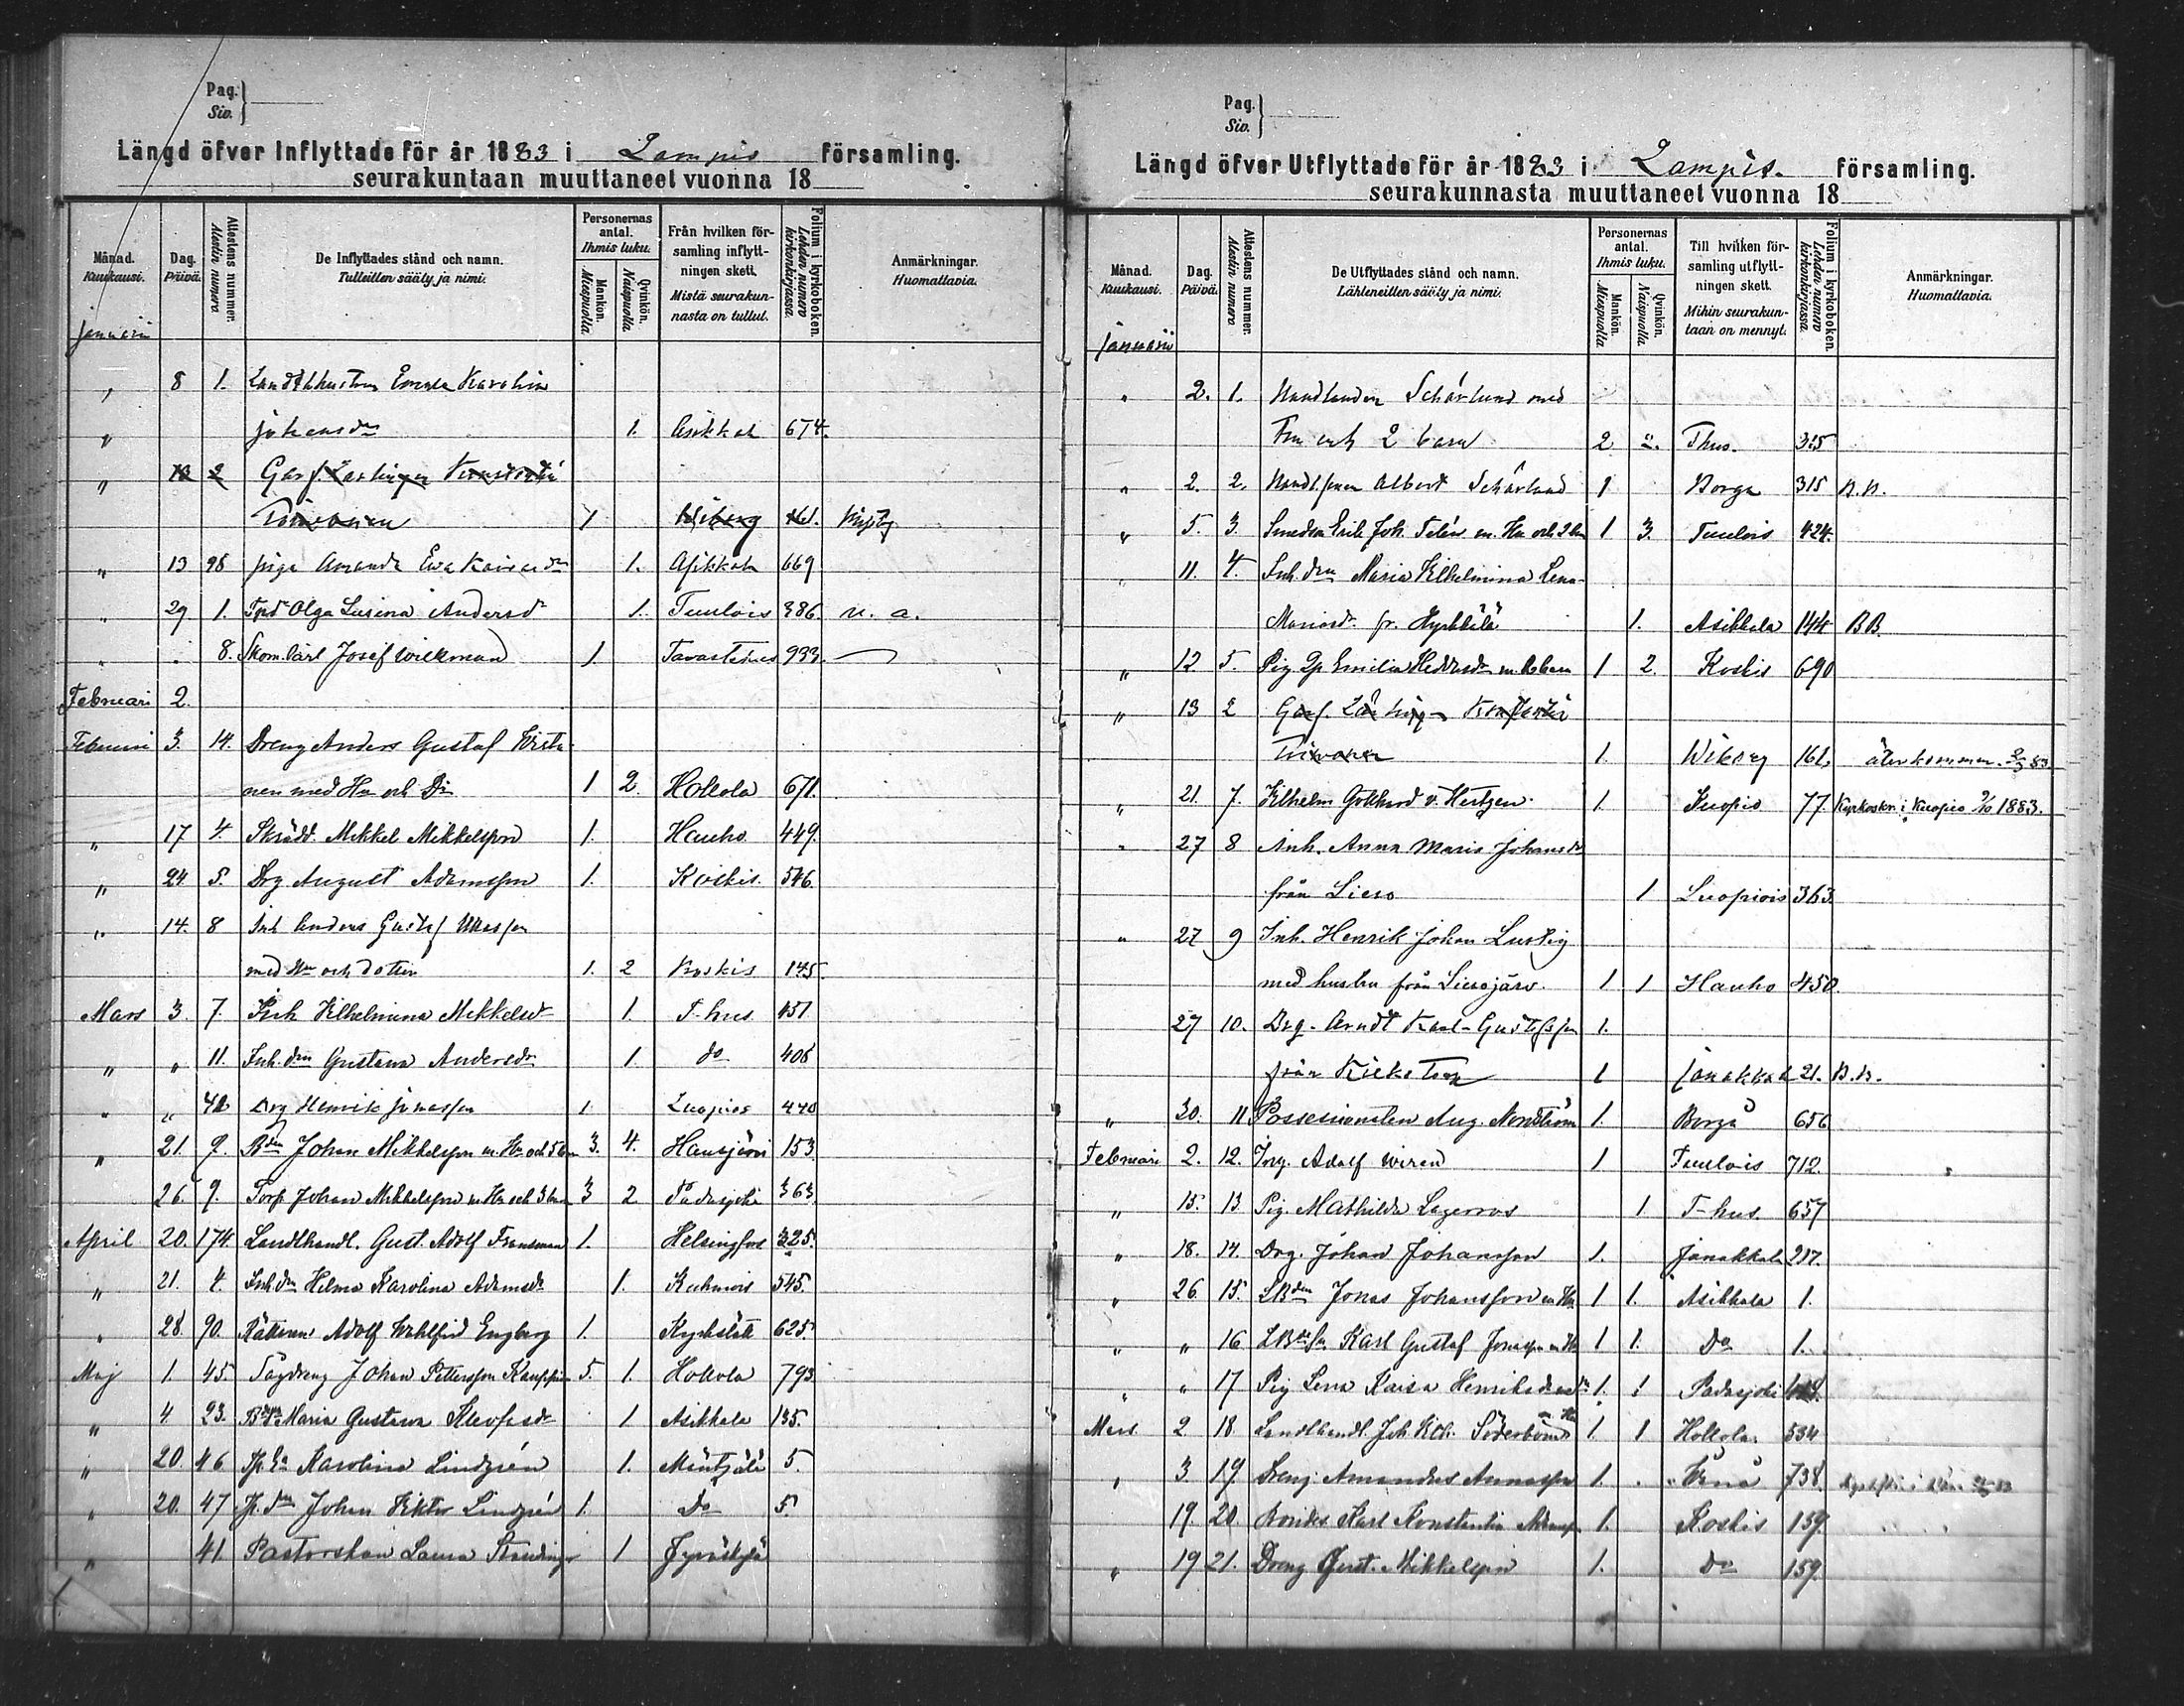 Pag.
Siv.
Längd öfver Inflyttade för år 1883 i Lampis församling.
seurakuntaan muuttaneet vuonna 18
Månad. Kuukausi. Dag. Päivä. Attestens nummer. Alestin numero De Inflyttades stånd och namn. Tulleitten sääty ja nimi. Personernas antal. Ihmis luku. Mankön. Miespuolta Qvinkön. Naispuolta Från hvilken församling inflyttningen skett. Mistä seurakunnasta on tullut. Folium i kyrkoboken. Lehden numero kirkonkirjassa. Anmärkningar. Huomattavia.
Januari
" 8 1. Emma Karolin
" Johansdr 1. Asikkala 674.
" 12 2
Toivonen 1 Wiborg 161.
" 13 98 piga Amanda Eva Kaisasdr 1. Asikkala 669
" 29 1. Olga Lusina Andersdr 1. Tuulois 386. n. a.
" " 8. Skom. Carl Josef Wilkman 1. Tavastehus 933.
Februari 2.
Februari 3. 14. Dreng Anders Gustaf
nen med Hu och Dr 1 2 Hollola 671.
" 17 4. Skrädd. Mikkel Mikkelsson 1. Hauho 449.
" 24 5. Drg August Adamsson 1. Koskis 546.
" 14. 8 Inh Anders Gustaf
med Hu och dotter 1. 2 Koskis 145.
Mars 3. 7. Inh Vilhelmina Mikkelsdr 1. T-hus 451
" " 11. Inh. dru Gustava Andersdr 1. do 406
" " 42 Drg Henrik Jonasson 1. Luopios 440
" 21. 9. Bdn Johan Mikkelsson m. Hu och 5 bn 3. 4. Hausjärvi 153
26. 9. Torp Johan Mikkelsson m Hu och 3 bn 3 2 Padasjoki 363
April 20. 174. Landthandl. Gust. Adolf Fransman 1. Helsingfors 325.
" 21. 4. Inh dr Helma Karolina Adamsdr 1. Kuhmois 545.
" 28. 90. Rättaren Adolf Wahlfrid Engberg 1. Kyrkslätt 625.
Maj 1. 45. Sågdreng Johan Pettersson Kauppin 5. 1. Hollola 793.
" 4 23. Maria Gustava Kleofasdr 1 Asikkala 135.
" 20. 46 Karolina Lindgrén 1. Mäntsälä 5.
" 20. 47 Johan Viktor Lindgrén 1. Do 5.
" 41 Pastorskan Laura 1 Jyväskylä
Pag.
Siv.
Längd öfver Utflyttade för år 1883 i Lampis. församling.
seurakunnasta muuttaneet vuonna 18
Månad. Kuukausi. Dag. Päivä. Attestens nummer. Alestin numero De Utflyttades stånd och namn. Lähteneitten sääty ja nimi. Personernas antal. Ihmis luku. Mankön. Miespuolta Qvinkön. Naispuolta Till hvilken församling utflyttningen skett. Mihin seurakuntaan on mennyt. Folium i kyrkoboken. Lehden numero kirkonkirjassa. Anmärkningar. Huomattavia.
Januari
" 2. 1. Handlanden Schärlund med
Fru och 2 barn 2 2. Thus. 315
" 2. 2. Albert Schärlund 1 Borga 315 n.n.
" 5. 3. Smeden Erik Joh. Telén m. Hu och 2 bn 1 3. Tuulois 424.
" 11. 4. Inh. dru Maria Vilhelmina Lena
Mariasdr fr. Hyrkkälä 1. Asikkala 144 BB.
" 12 5. Pig Emilia Heddasdr m. 2 barn 1 2. Koskis 690
" 13 2
Toivonen 1. Wiborg 161. återkommen 2/3 83.
" 21. 7. Vilhelm Gotthard v. Hertzen 1. Kuopio 77. Kyrkoskr. i Kuopio 9/10 1883.
" 27 8 Inh. Anna Maria Johansdr
från Lieso 1 Luopiois 363
" 27 9 Inh. Henrik Johan Lustig
med hustru från Liesojärv. 1 1 Hauho 450
27 10. Drg. Arndt Karl-Gustafsson 1.
från 1 Janakkala 21. n.n.
" 30. 11 Possessionaten Aug. Nordström 1. Borgå 656
Februari 2. 12. Adolf Wiren 1 Tuulois 712.
" 15. 13. Pig Mathilda Lagerros 1 T-hus 657
" 18. 14. Drg. Johan Johansson 1. Janakkala 217.
" 26 15. LBden Jonas Johansson m Hu 1 1. Asikkala 1.
" " 16 Karl Gustaf Jonasson m Hu 1 1. Do 1.
" " 17 Pig Lena Kaisa Henriksdr 1. 1 Padasjoki
Mars 2 18. Landthandl. Joh. Vilh. Söderbom m Hu 1 1 Hollola 534
" 3 19 Dreng Amandus Annasson 1. 738.
19. 20. Bondes. Karl Konstantin 1. Koskis 159.
" 19 21. Dreng Gust. Mikkelsson 1. Do 159.